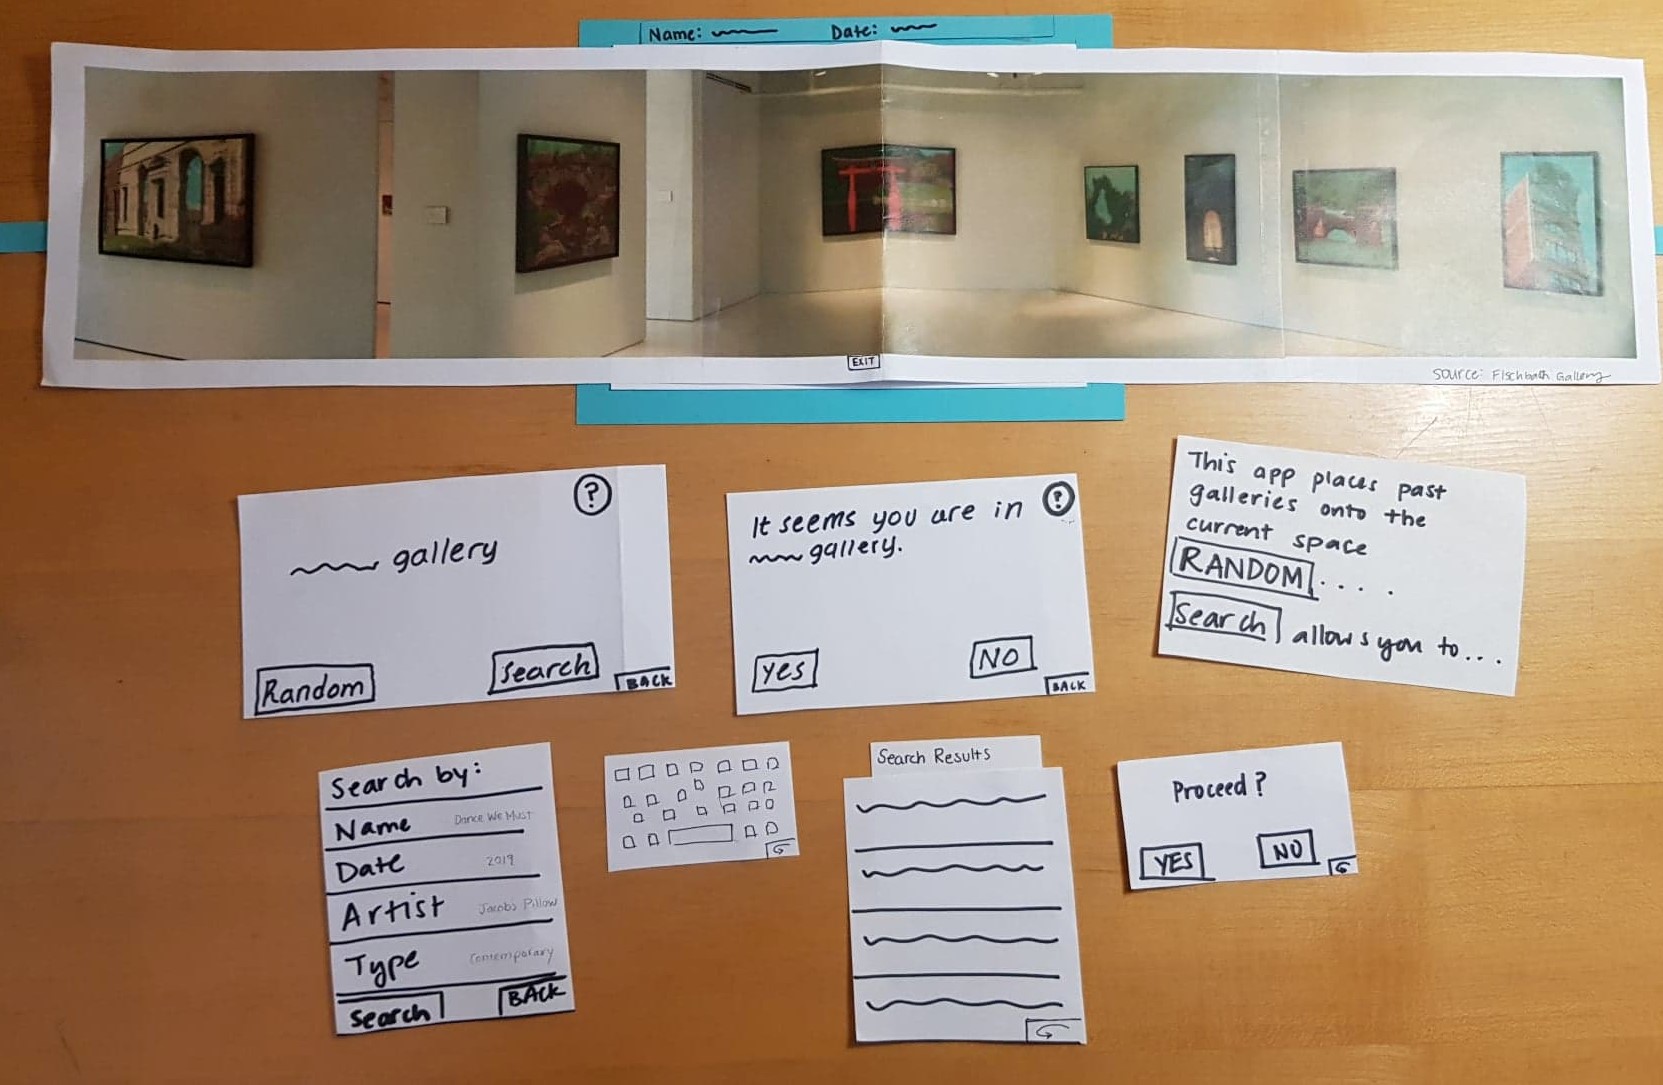 Name: Date:
EXIT
Source: Fischbach Gallery
?
gallery
Random Search
BACK
It seems you are in ?
gallery.
yes NO
BACK
This app places past
galleries onto the
current space
RANDOM . . . . .
Search allows you to...
Search by:
Name Dance We Must
Date 2019
Artist Jacobs Pillow
Type Contemporary
Search BACK
Search Results
Proceed?
YES NO